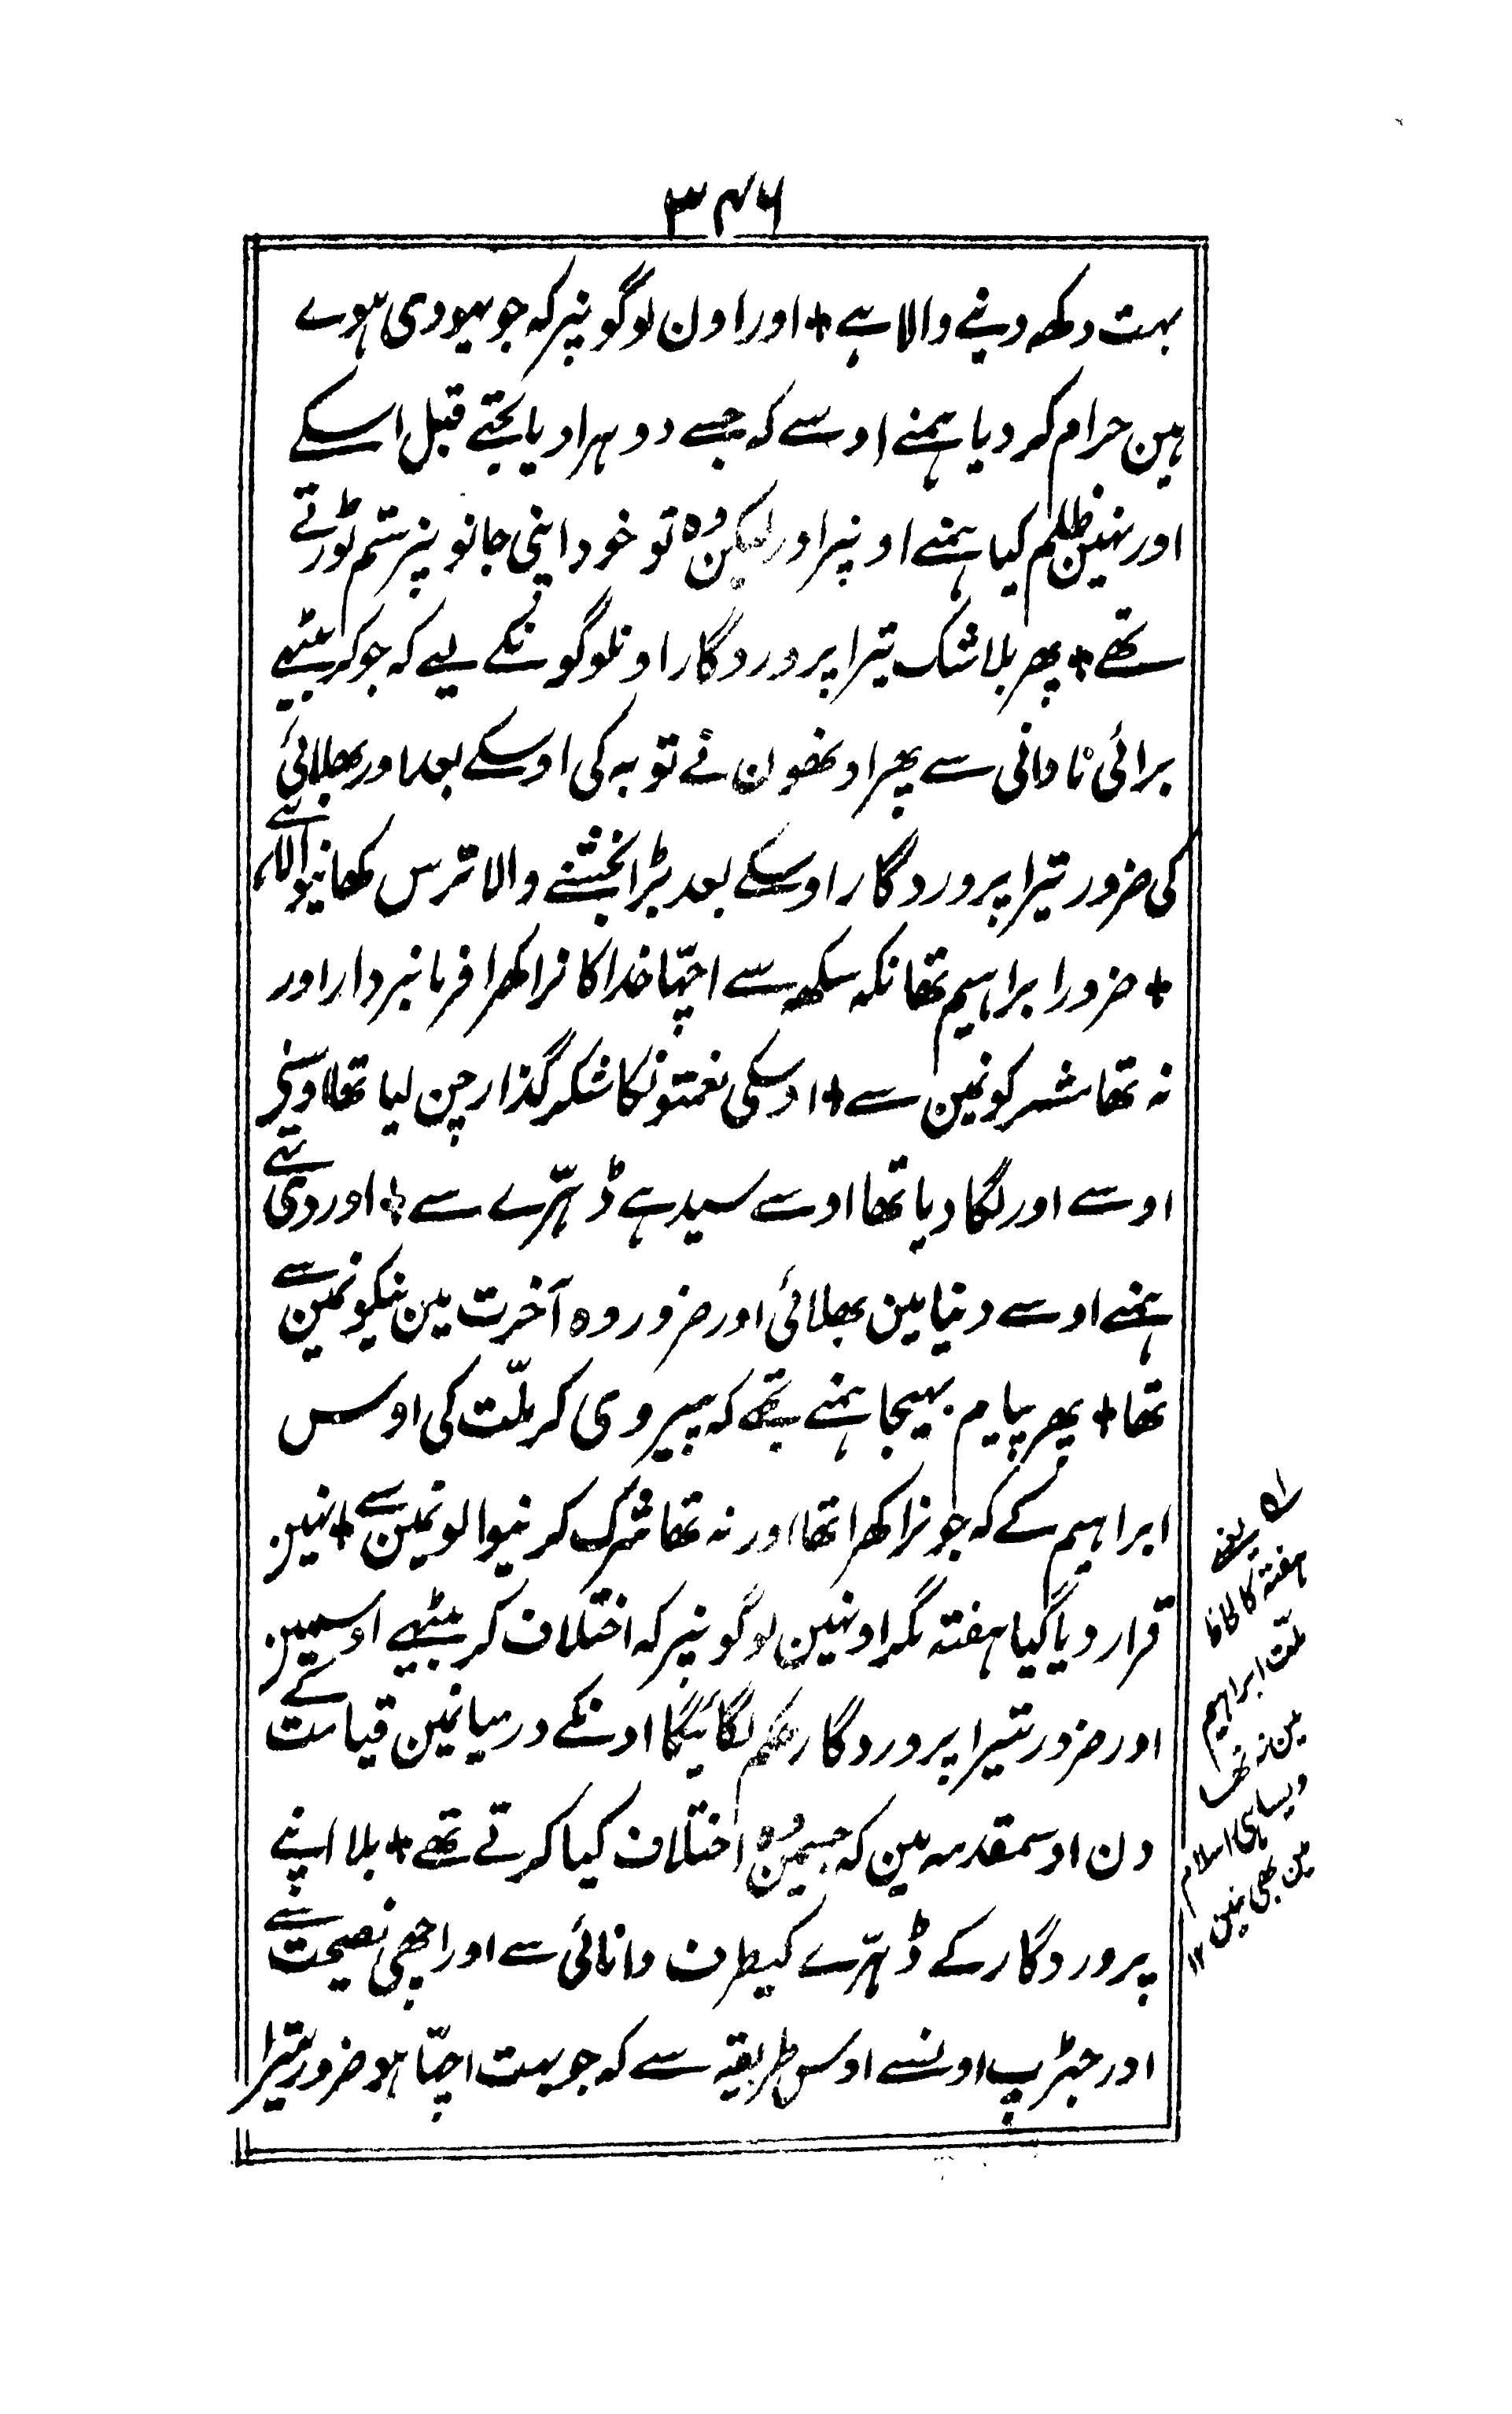 ۳۴۶
بہت دکھ دینے والا ہے + اور اون لوگونپر کہ جو یہودی ہوے
ہین حرام کر دیا ہمنے اوسے کہ جسے دوہرا دیا تجھے قبل اسکے
اور نہین ظلم کیا ہمنے اونپر اور لیکن وہ تو خود اپنی جانونپر ستم توڑتے
تھے + پھر بلاشک تیرا پروردگار اونلوگونکے لیے کہ جو کر بیٹھے
برائی نادانی سے پھر اونھون نے توبہ کی اوسکے بعد اور بھلائی
کی ضرور تیرا پروردگار اوسکے بعد بڑا بخشنے والا ترس کھانیوالا ہے
+ ضرور ابراہیم تھا نکھ سکھ سے اچھا خدا کا نرا کھرا فرمانبردار اور
نہ تھا مشرکونمین سے + اوسکی نعمتونکا شکر گذار چن لیا تھا اوسنے
اوسے اور لگا دیا تھا اوسے سیدہے ڈہرّے سے + اور دی تھی
ہمنے اوسے دنیا مین بھلائی اور ضرور وہ آخرت مین نیکونمین سے
تھا + پھر پیام بھیجا ہمنے تجھے کہ پیروی کر ملّت کی اوس
ابراہیم کے کہ جو نرا کھرا تھا اور نہ تھا شرک کرنیوالونمین سے + نہین
قرار دیا گیا ہفتہ مگر اونہین لوگونپر کہ اختلاف کر بیٹھے اوسمین
اور ضرور تیرا پروردگار حکم لگائیگا اونکے درمیانمین قیامت کے
دن اوسمقدمہ مین کہ جسمین وہ اختلاف کیا کرتے تھے + بلا اپنے
پروردگار کے ڈہرّے کیطرف دانائی سے اور اچھی نصیحت سے
اور جھڑپ اونسے اوس طریقہ سے کہ جو بہت اچھا ہو ضرور تیرا
یعنے
ہفتہ کا لحاظ
ملت ابراہیم
مین نہ تھا
ویسا ہی اسلام
مین بھی نہین ۱۲